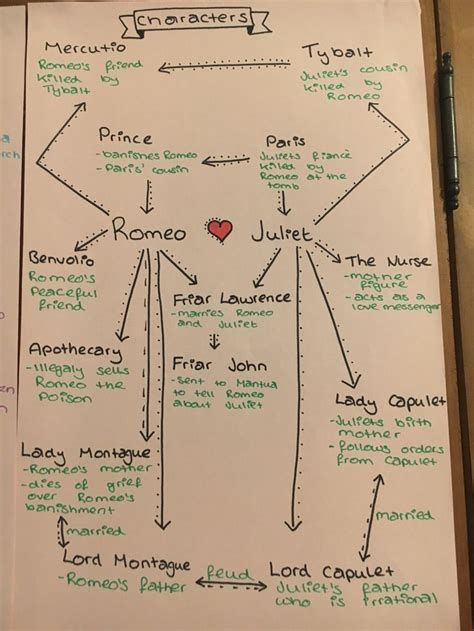 characters
Mercutio
Romeo's friend
killed by
Tybalt
Tybalt
Juliet's cousin
killed by
Romeo
Prince
-banishes Romeo
-Paris' cousin
Paris
Juliets fiancè
killed by
Romeo at the
tomb
Romeo
Juliet
Benvolio
Romeo's
Peaceful
friend
The Nurse
-mother
figure
-acts as a
love messenger
Friar Lawrence
-marries Romeo
and Juliet
Apothecary
-Illegally sells
Romeo the
Poison
Friar John
-sent to Mantua
to tell Romeo
about Juliet
Lady Capulet
-Juliets birth
mother
-follows orders
from Capulet
Lady Montague
-Romeo's mother
-dies of grief
over Romeo's
banishment
married
married
Lord Montague
-Romeo's father
feud
Lord Capulet
Juliet's father
who is irrational